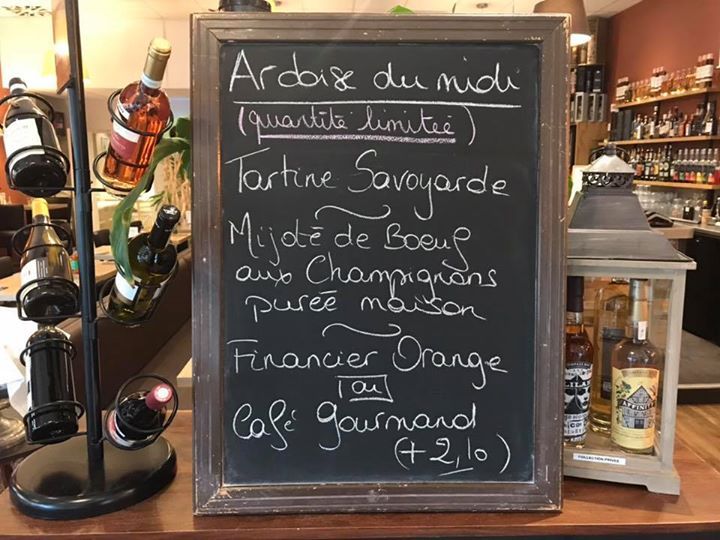 Ardoise du midi
(quantité limitée)
Tartine Savoyarde
Mijoté de Boeuf
aux Champignons
purée maison
Financier Orange
ou
Café gourmand
(+ 2,10)
AFFINITY
COLLECTION PRIVEE